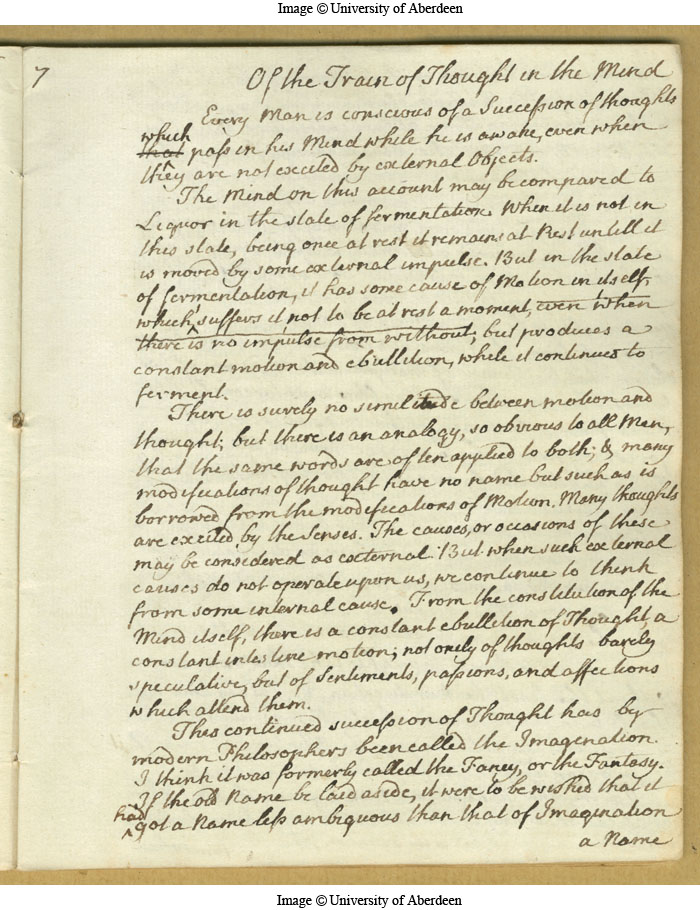 Image © University of Aberdeen
7
Of the Train of Thought in the Mind
Every Man is conscious of a Succession of thoughts
which
that pass in his Mind while he is awake, even when
they are not excited by external Objects.
The Mind on this account may be compared to
Liquor in the state of fermentation. When it is not in
this state, being once at rest it remains at Rest untill it
is moved by some external impulse. But in the state
of fermentation, it has some cause of Motion in itself,
which suffers it not to be at rest a moment, even when
there is no impulse from without; but produces a
constant motion and ebullition, while it continues to
ferment.
There is surely no similitude between motion and
thought; but there is an analogy, so obvious to all Men,
that the same words are often applied to both; & many
modifications of thought have no name but such as is
borrowed from the modifications of Motion. Many thoughts
are excited by the Senses. The causes, or occasions of these
may be considered as external. But when such external
causes do not operate upon us, we continue to think
from some internal cause. From the constitution of the
Mind itself, there is a constant ebullition of Thought, a
constant intestine motion; not onely of thoughts barely
speculative, but of Sentiments, passions, and affections
which attend them.
This continued succession of Thought has by
modern Philosophers been called the Imagination.
I think it was formerly called the Fancy, or the Fantasy.
If the old Name be laid aside, it were to be wished that it
had
got a Name less ambiguous than that of Imagination
a Name
Image © University of Aberdeen